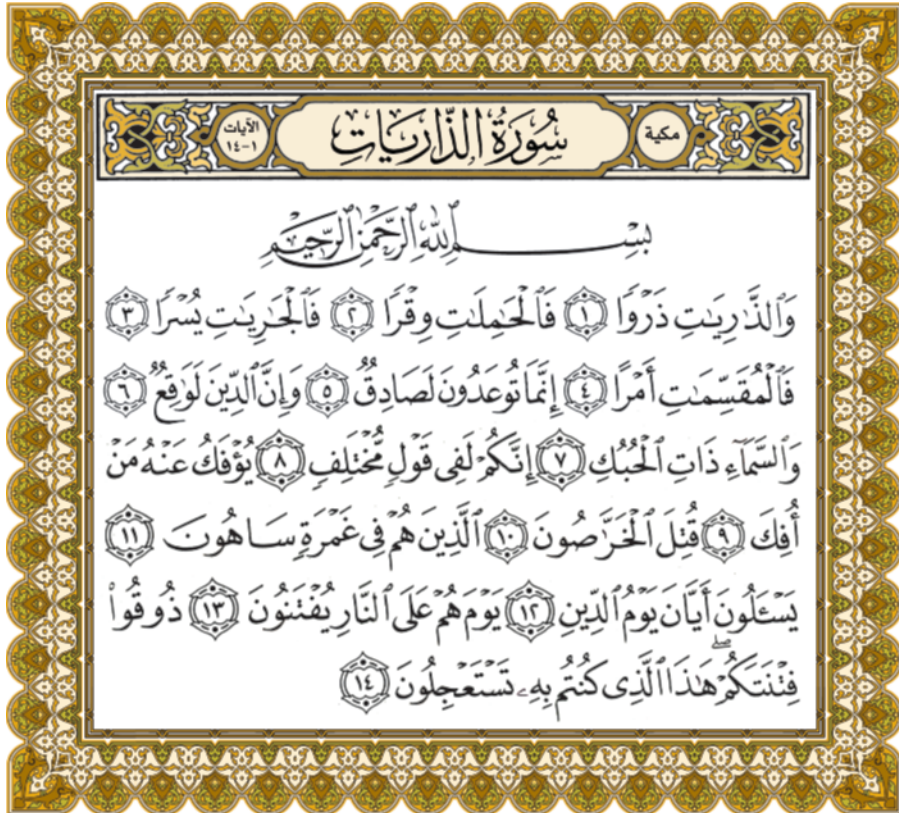 مكية
سُورَةُ الذَّارِيَاتِ
الآيات
١-١٤
بِسْمِ ٱللَّهِ ٱلرَّحْمَٰنِ ٱلرَّحِيمِ
وَٱلذَّٰرِيَٰتِ ذَرْوًا ١ فَٱلْحَٰمِلَٰتِ وِقْرًا ٢ فَٱلْجَٰرِيَٰتِ يُسْرًا ٣
فَٱلْمُقَسِّمَٰتِ أَمْرًا ٤ إِنَّمَا تُوعَدُونَ لَصَادِقٌ ٥ وَإِنَّ ٱلدِّينَ لَوَٰقِعٌ ٦
وَٱلسَّمَآءِ ذَاتِ ٱلْحُبُكِ ٧ إِنَّكُمْ لَفِى قَوْلٍ مُّخْتَلِفٍ ٨ يُؤْفَكُ عَنْهُ مَنْ
أُفِكَ ٩ قُتِلَ ٱلْخَرَّٰصُونَ ١٠ ٱلَّذِينَ هُمْ فِى غَمْرَةٍ سَاهُونَ ١١
يَسْـَٔلُونَ أَيَّانَ يَوْمُ ٱلدِّينِ ١٢ يَوْمَ هُمْ عَلَى ٱلنَّارِ يُفْتَنُونَ ١٣ ذُوقُوا۟
فِتْنَتَكُمْ ۖ هَٰذَا ٱلَّذِى كُنتُم بِهِۦ تَسْتَعْجِلُونَ ١٤